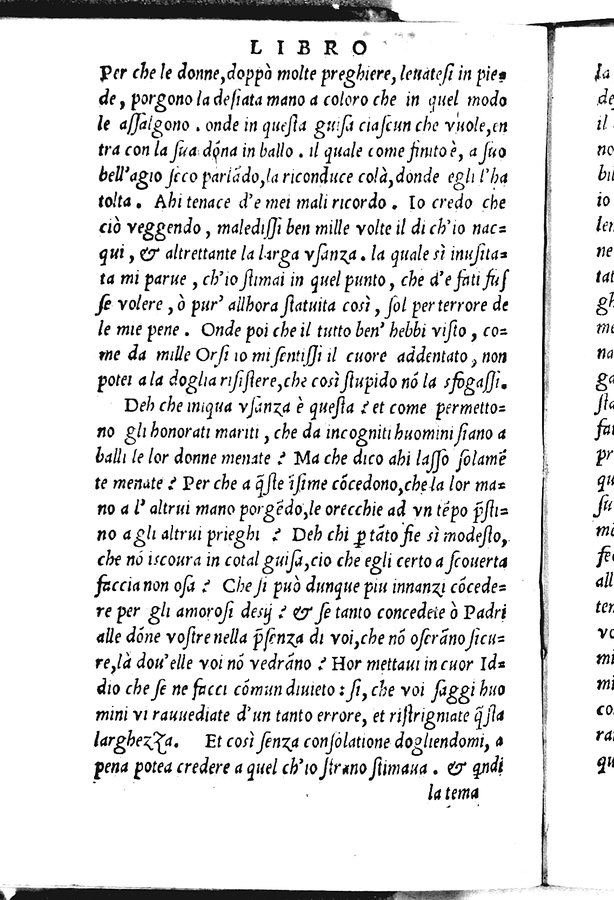 LIBRO
Per che le donne, doppò molte preghiere, leuatesi in pie=
de, porgono la desiata mano a coloro che in quel modo
le assalgono. onde in questa guisa ciascun che vuole, en
tra con la sua dõna in ballo. il quale come finito è, a suo
bell'agio seco parlãdo, la riconduce colà, donde egli l'ha
tolta. Ahi tenace d'e mei mali ricordo. Io credo che
ciò veggendo, maledissi ben mille volte il dì ch'io nac=
qui, & altrettante la larga vsanza. la quale sì inusita=
ta mi parue, ch'io stimai in quel punto, che d'e fati fus
se volere, ò pur' allhora statuita così, sol per terrore de
le mie pene. Onde poi che il tutto ben' hebbi visto, co=
me da mille Orsi io mi sentissi il cuore addentato, non
potei a la doglia risistere, che così stupido nõ la sfogassi.
Deh che iniqua vsanza è questa? et come permetto=
no gli honorati mariti, che da incogniti huomini siano a
balli le lor donne menate? Ma che dico ahi lasso solamẽ
te menate? Per che a q̃ste ĩsime cõcedono, che la lor ma=
no a l'altrui mano porgẽdo, le orecchie ad vn tẽpo p̃sti=
no a gli altrui prieghi? Deh chi ꝑ tãto fie sì modesto,
che nõ iscoura in cotal guisa, cio che egli certo a scouerta
faccia non osa? Che si può dunque piu innanzi cõcede=
re per gli amorosi desij? & se tanto concedete ò Padri
alle dõne vostre nella p̃senza di voi, che nõ oserãno sicu=
re, là dou'elle voi nõ vedrãno? Hor mettaui in cuor Id=
dio che se ne facci cõmun diuieto: sì, che voi saggi huo
mini vi rauuediate d'un tanto errore, et ristrigniate q̃sta
larghezza. Et così senza consolatione dogliendomi, a
pena potea credere a quel ch'io strano stimaua. & qndi
la tema